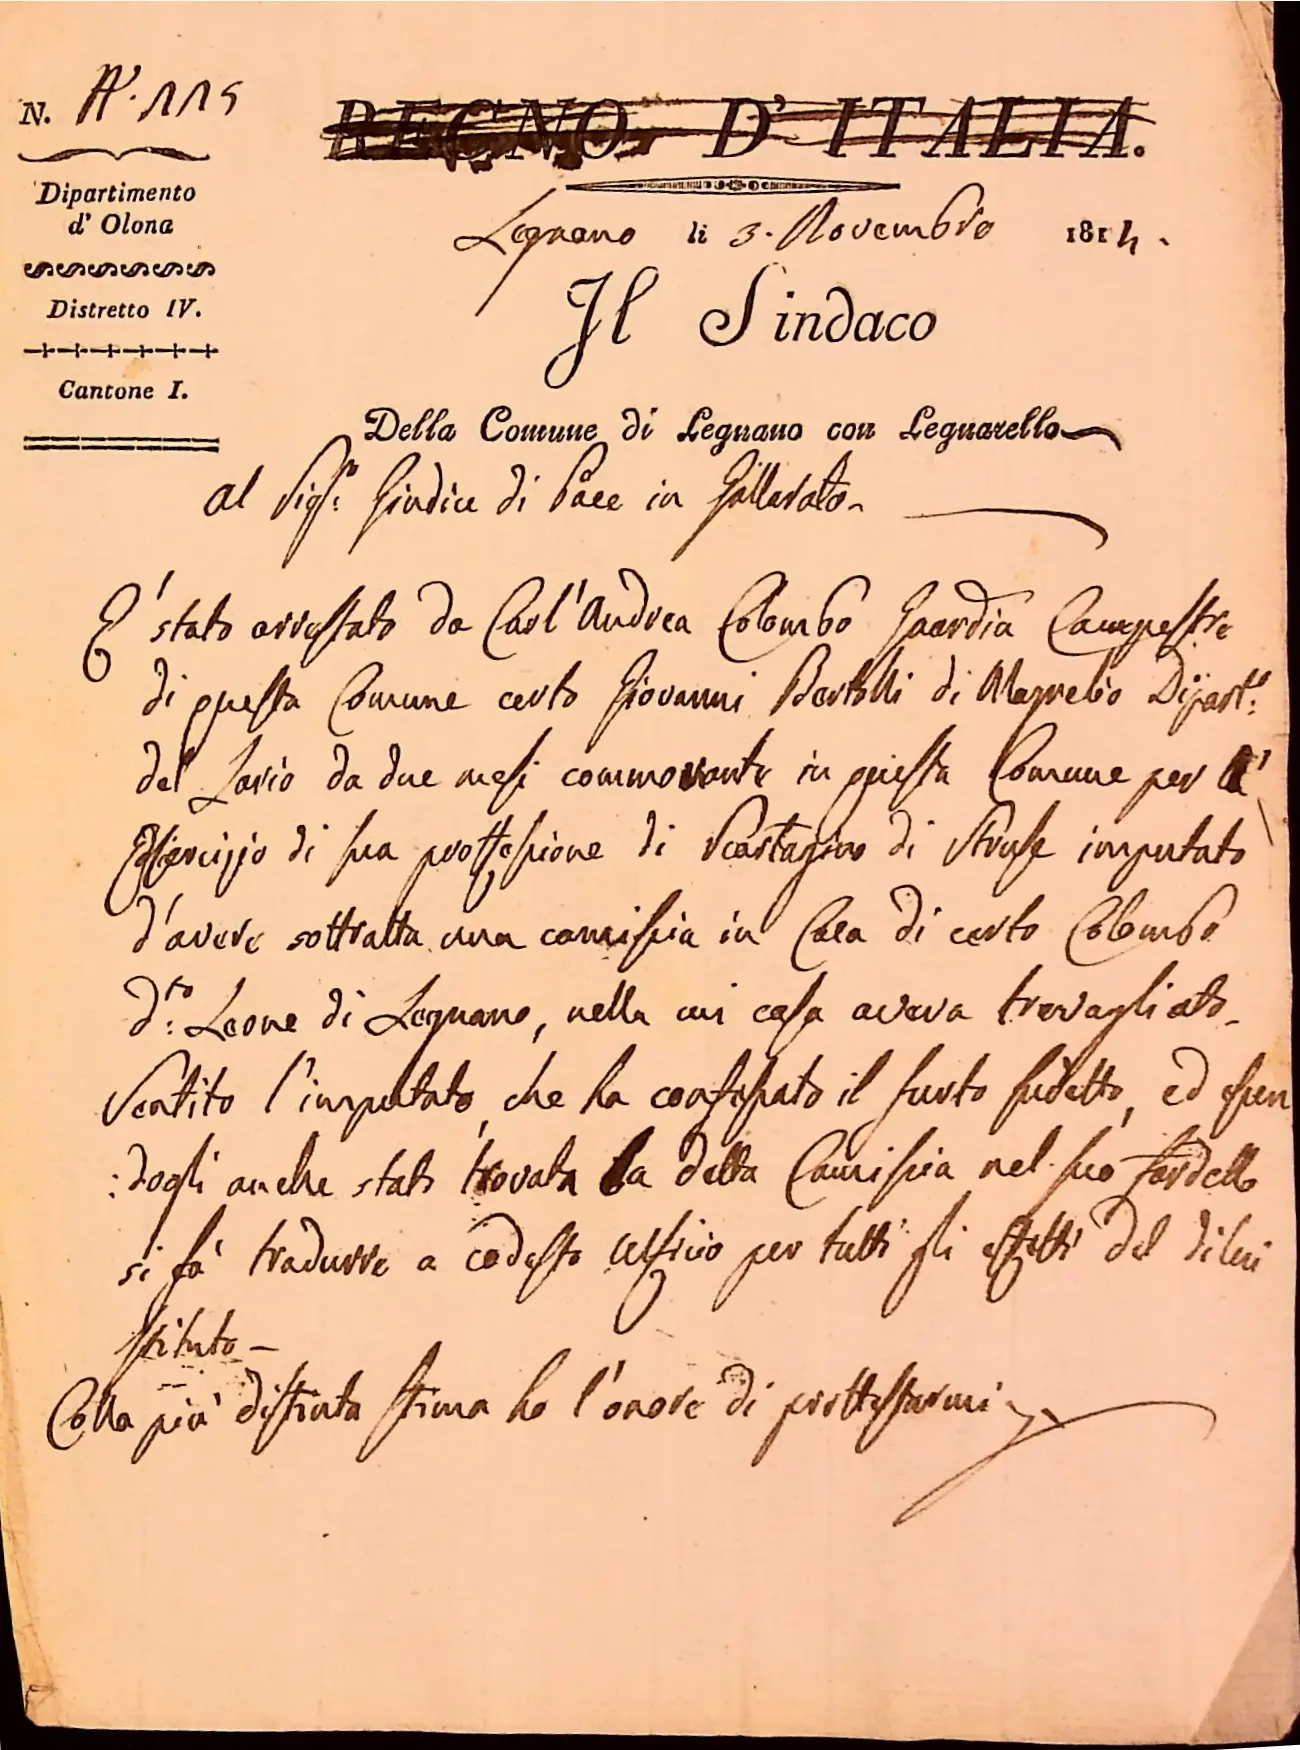 N. A'. 115
REGNO D'ITALIA.
Dipartimento
d'Olona
Distretto IV.
Cantone I.
Legnano li 3. Novembre 1814.
Il Sindaco
Della Comune di Legnano con Legnarello
Al Sig.r Giudice di Pace in Gallarato
E' stato arrestato da Carl'Andrea Colombo Guardia Campestre
di questa Comune certo Giovanni Bertolli di Dipart.o
del Lario da due mesi commorante in questa Comune per l'
Essercizio di sua proffessione di di Struse imputato
d'avere sottratta una camiscia in Casa di certo Colombo
d.to Leone di Legnano, nella cui casa aveva travagliato
Sentito l'imputato, che ha confessato il furto sudetto, ed essen
:dogli anche stato trovata la detta Camiscia nel suo fardello
si fà tradurre a codesto Ufficio per tutti gli effetti del di lui
stituto
Colla piu' distinta stima ho l'onore di prottestarmi